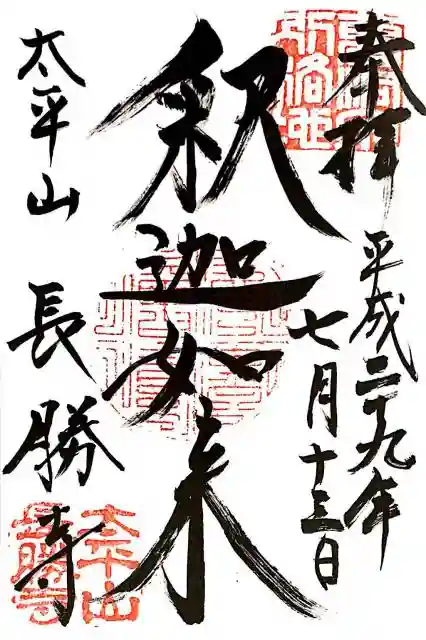 奉拝
平成二十九年
七月十三日
釈迦如来
太平山
長勝寺
太平山
長勝寺